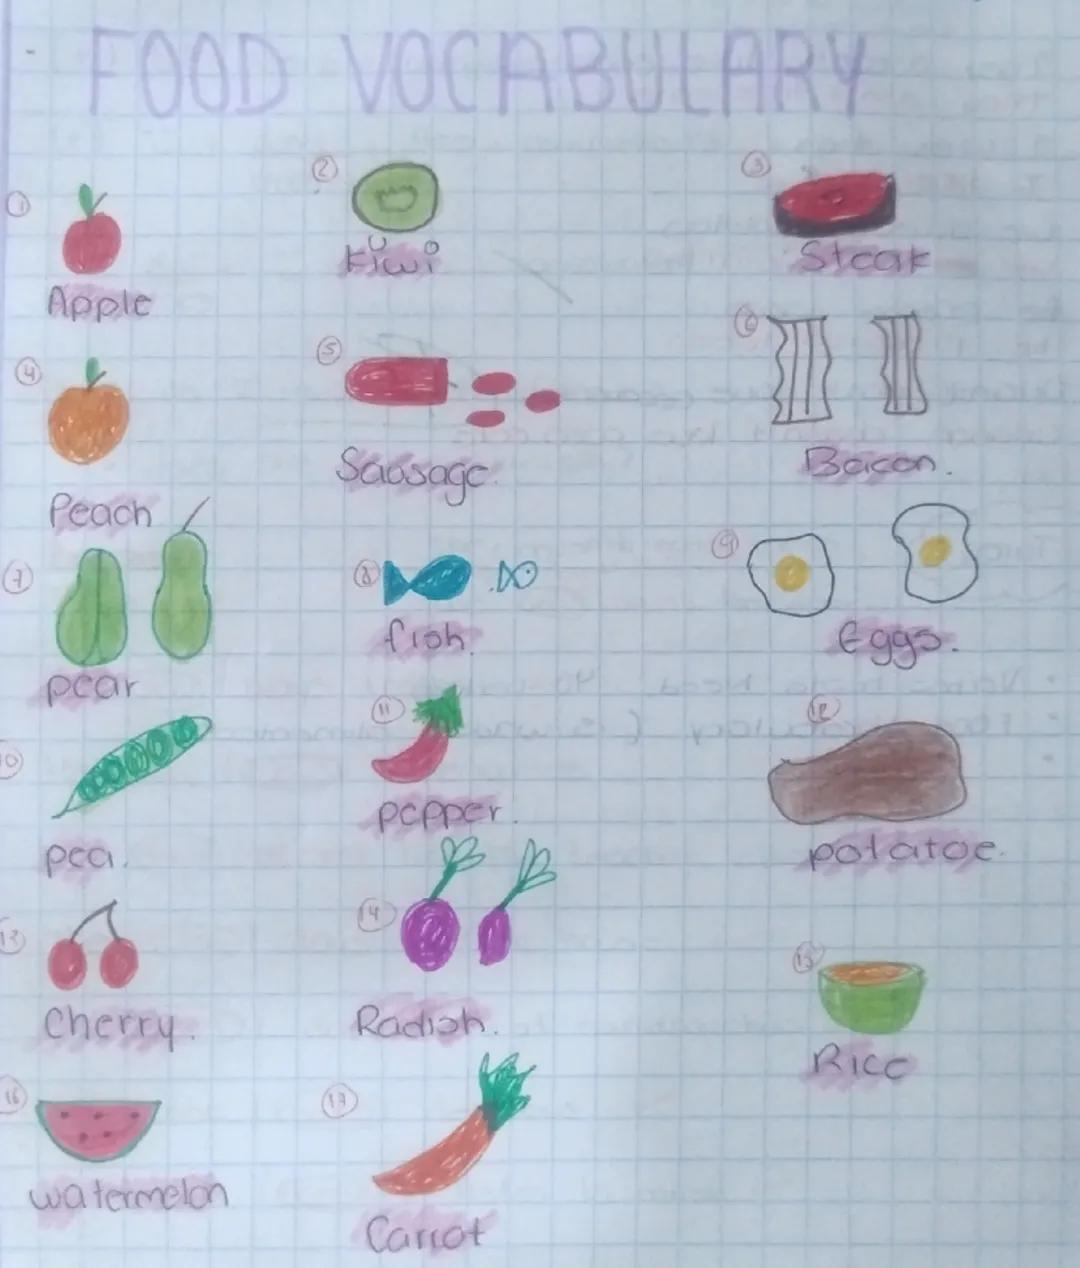 FOOD VOCABULARY
1 Apple
2 Kiwi
3 Steak
4 Peach
5 Sausage.
6 Bacon.
7 pear
8 fish.
9 Eggs.
10 pea.
11 pepper.
12 potatoe.
13 Cherry.
14 Radish.
15 Rice
16 watermelon
17 Carrot